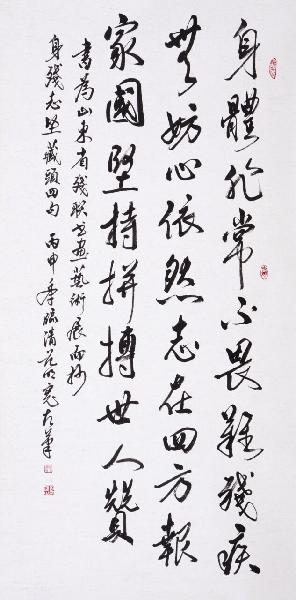 身體非常不畏難殘疾
無妨心依然志在四方報
家國堅持拼搏世人贊
書為山東省殘聯書畫藝術展而抄
身殘志堅藏頭四句 丙申年臨清范明寬左筆